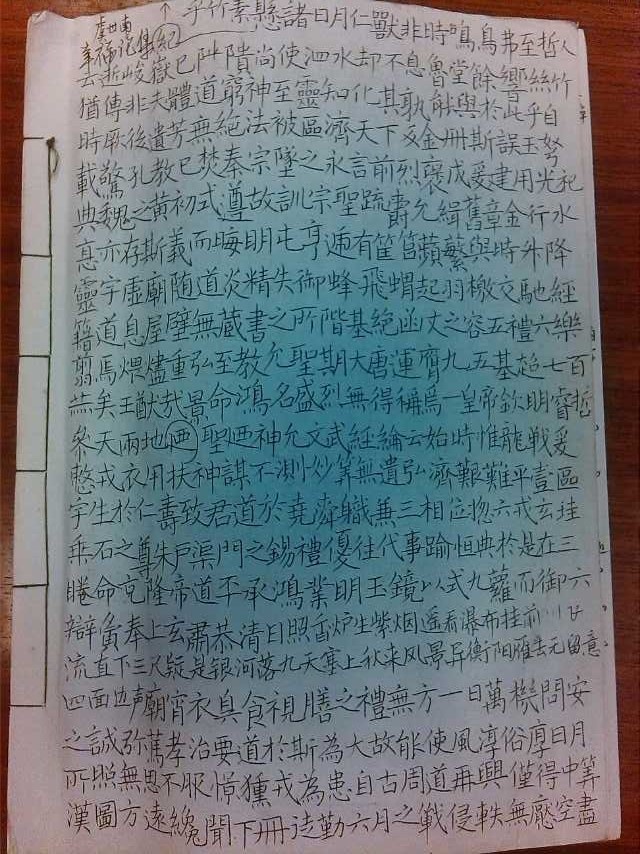 乎竹素懸諸日月仁獸非時鳴鳥弗至哲人
去逝峻嶽已阤隤尚使泗水却不息魯堂餘響絲竹
猶傳非夫體道窮神至靈知化其孰能與於此乎自
時厥後遺芳無絕法被區濟天下及金冊斯誤玉弩
載驚孔教已焚秦宗墜之永言前烈褒成爰建用光祀
典魏之黃初式遵故訓宗聖疏爵允緝舊章金行水
息亦存斯義而晦明屯亨遞有筐筥蘋蘩與時升降
靈宇虛廟隨道炎精失御蜂飛蝟起羽檄交馳經
籍道息屋壁無藏書之所階基絕函丈之容五禮六樂
翦焉煨燼重弘至教允聖期大唐運膺九五基超七百
赫矣王猷哉景命鴻名盛烈無得稱焉一皇帝欽明睿哲
參天兩地迺聖迺神允文武經綸云始時惟龍戰爰
整戎衣用扶神謀不測妙筭無遺弘濟艱難平壹區
宇生於仁壽致君道於堯舜職兼三相位揔六戎玄珪
乘石之尊朱戶渠門之錫禮優往代事踰恒典於是在三
睠命克隆帝道丕承鴻業明玉鏡以式九蘿而御六
辯寅奉上玄肅恭清日照香炉生紫烟遥看瀑布挂前川飞
流直下三尺疑是银河落九天塞上秋来风景异衡阳雁去无留意
四面边声廟宵衣具食視膳之禮無方一日萬機問安
之誠弥篤孝治要道於斯為大故能使風淳俗厚日月
所照無思不服憬獯戎為患自古周道再興僅得中筭
漢圖方遠纔聞下冊徒勤六月之戰侵軼無厭空盡